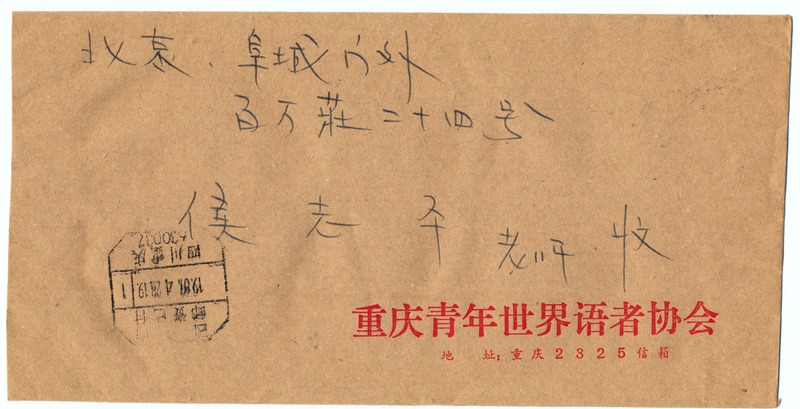 北京、阜城门外
百万莊二十四号
侯志平 老师 收
四川重庆
国 邮资已付
重庆青年世界语者协会
地 址：重庆2325信箱